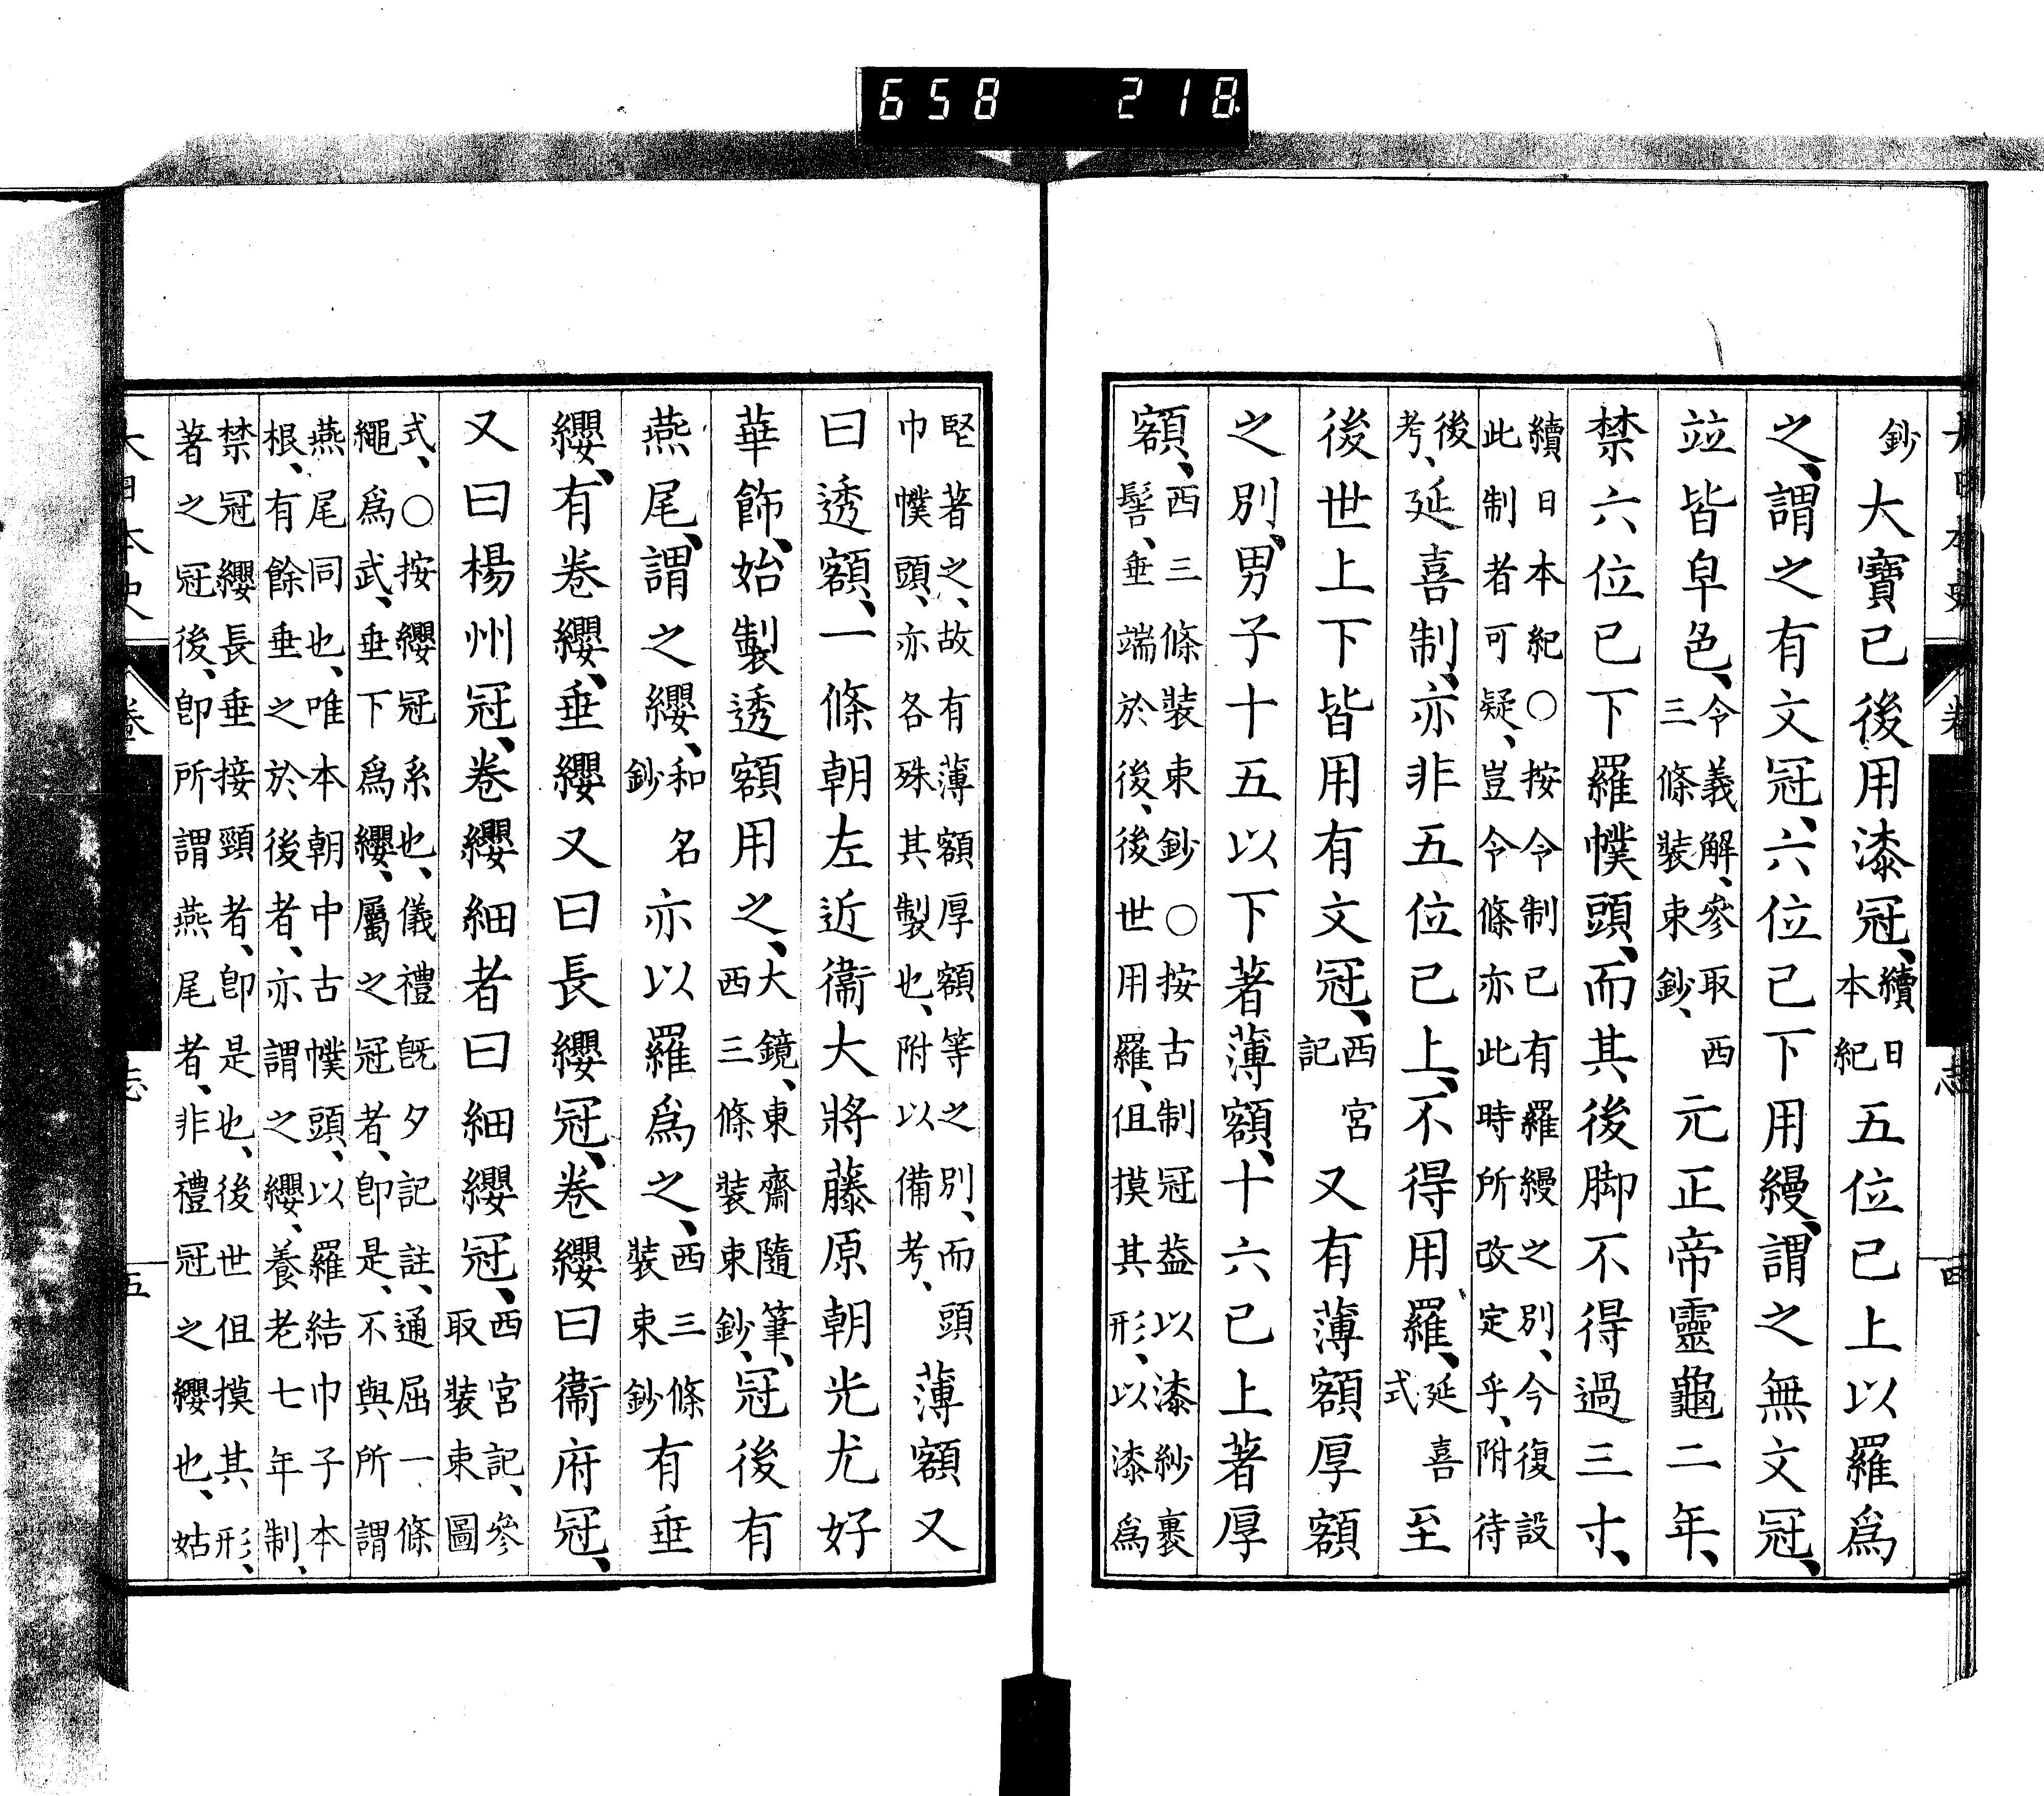 658 218
鈔大寶已後用漆冠、續日本紀五位已上以羅爲
之、謂之有文冠、六位已下用縵、謂之無文冠、
竝皆皁色、令義解、參取西三條裝束鈔、元正帝靈龜二年、
禁六位已下羅幞頭、而其後脚不得過三寸、
續日本紀○按令制已有羅縵之別、今復設此制者可疑、豈令條亦此時所改定乎、附待
後考、延喜制、亦非五位已上、不得用羅、延喜式至
後世上下皆用有文冠、西宮記又有薄額厚額
之別、男子十五以下著薄額、十六已上著厚
額、西三條裝束鈔○按古制冠蓋以漆紗裹髻、垂端於後、後世用羅、但摸其形、以漆爲
堅著之、故有薄額厚額等之別、而巾幞頭、亦各殊其製也、附以備考、頭薄額又
曰透額、一條朝左近衞大將藤原朝光尤好
華飾、始製透額用之、大鏡、東齋隨筆、西三條裝束鈔、冠後有
燕尾、謂之纓、和名鈔亦以羅爲之、西三條裝束鈔有垂
纓、有卷纓、垂纓又曰長纓冠、卷纓曰衞府冠、
又曰楊州冠、卷纓細者曰細纓冠、西宮記、參取裝束圖
式、○按纓冠系也、儀禮旣夕記註、通屈一條繩爲武、垂下爲纓、屬之冠者、卽是、不與所謂
燕尾同也、唯本朝中古幞頭、以羅結巾子本根、有餘垂之於後者、亦謂之纓、養老七年制、
禁冠纓長垂接頸者、卽是也、後世但摸其形、著之冠後、卽所謂燕尾者、非禮冠之纓也、姑
大日本史 卷 志 五